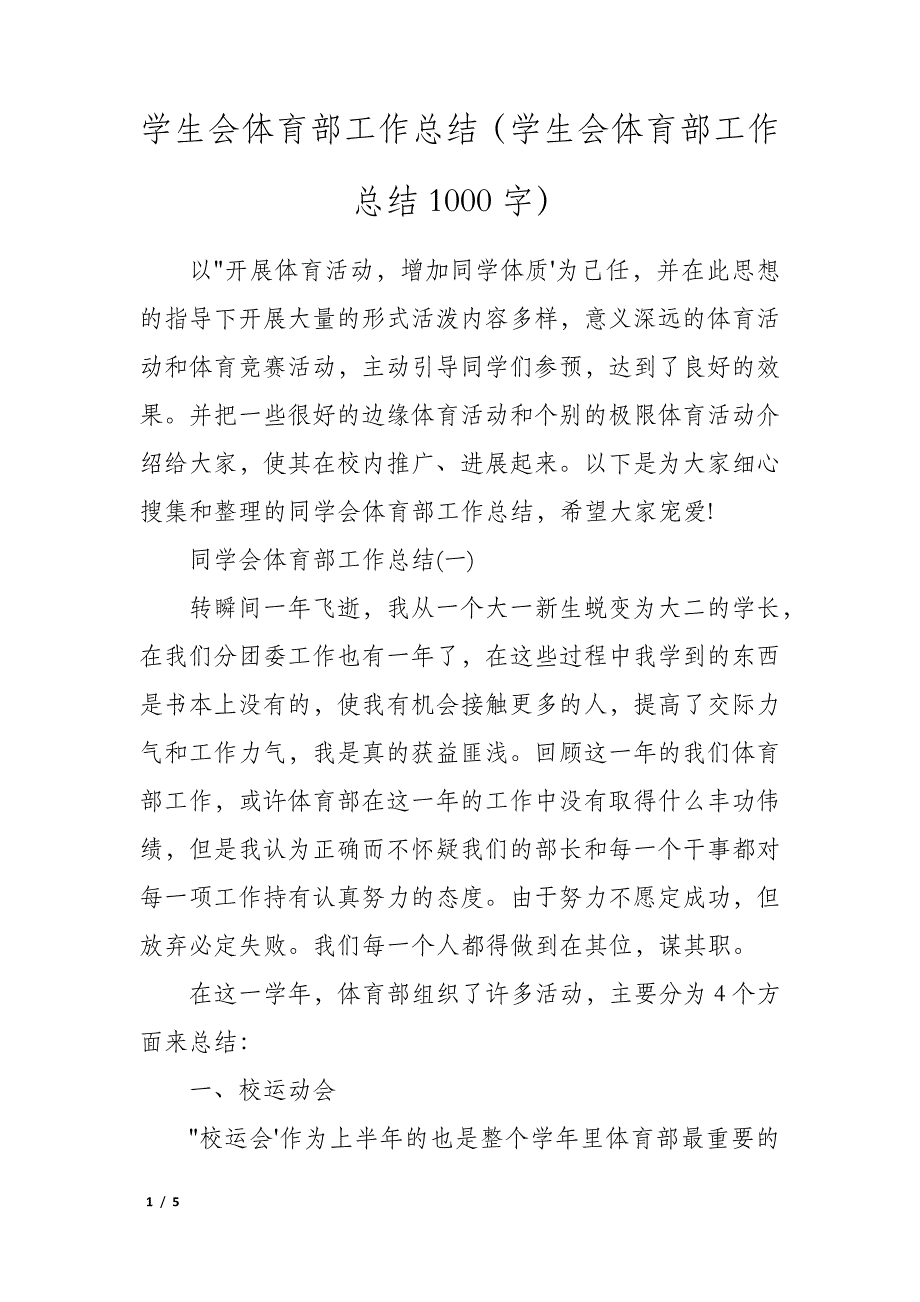 学生会体育部工作总结（学生会体育部工作
总结 1000 字）
以"开展体育活动，增加同学体质'为己任，并在此思想
的指导下开展大量的形式活泼内容多样，意义深远的体育活
动和体育竞赛活动，主动引导同学们参预，达到了良好的效
果。并把一些很好的边缘体育活动和个别的极限体育活动介
绍给大家，使其在校内推广、进展起来。以下是为大家细心
搜集和整理的同学会体育部工作总结，希望大家宠爱!
同学会体育部工作总结(一)
转瞬间一年飞逝，我从一个大一新生蜕变为大二的学长，
在我们分团委工作也有一年了，在这些过程中我学到的东西
是书本上没有的，使我有机会接触更多的人，提高了交际力
气和工作力气，我是真的获益匪浅。回顾这一年的我们体育
部工作，或许体育部在这一年的工作中没有取得什么丰功伟
绩，但是我认为正确而不怀疑我们的部长和每一个干事都对
每一项工作持有认真努力的态度。由于努力不愿定成功，但
放弃必定失败。我们每一个人都得做到在其位，谋其职。
在这一学年，体育部组织了许多活动，主要分为 4 个方
面来总结：
一、校运动会
"校运会'作为上半年的也是整个学年里体育部最重要的
1 / 5